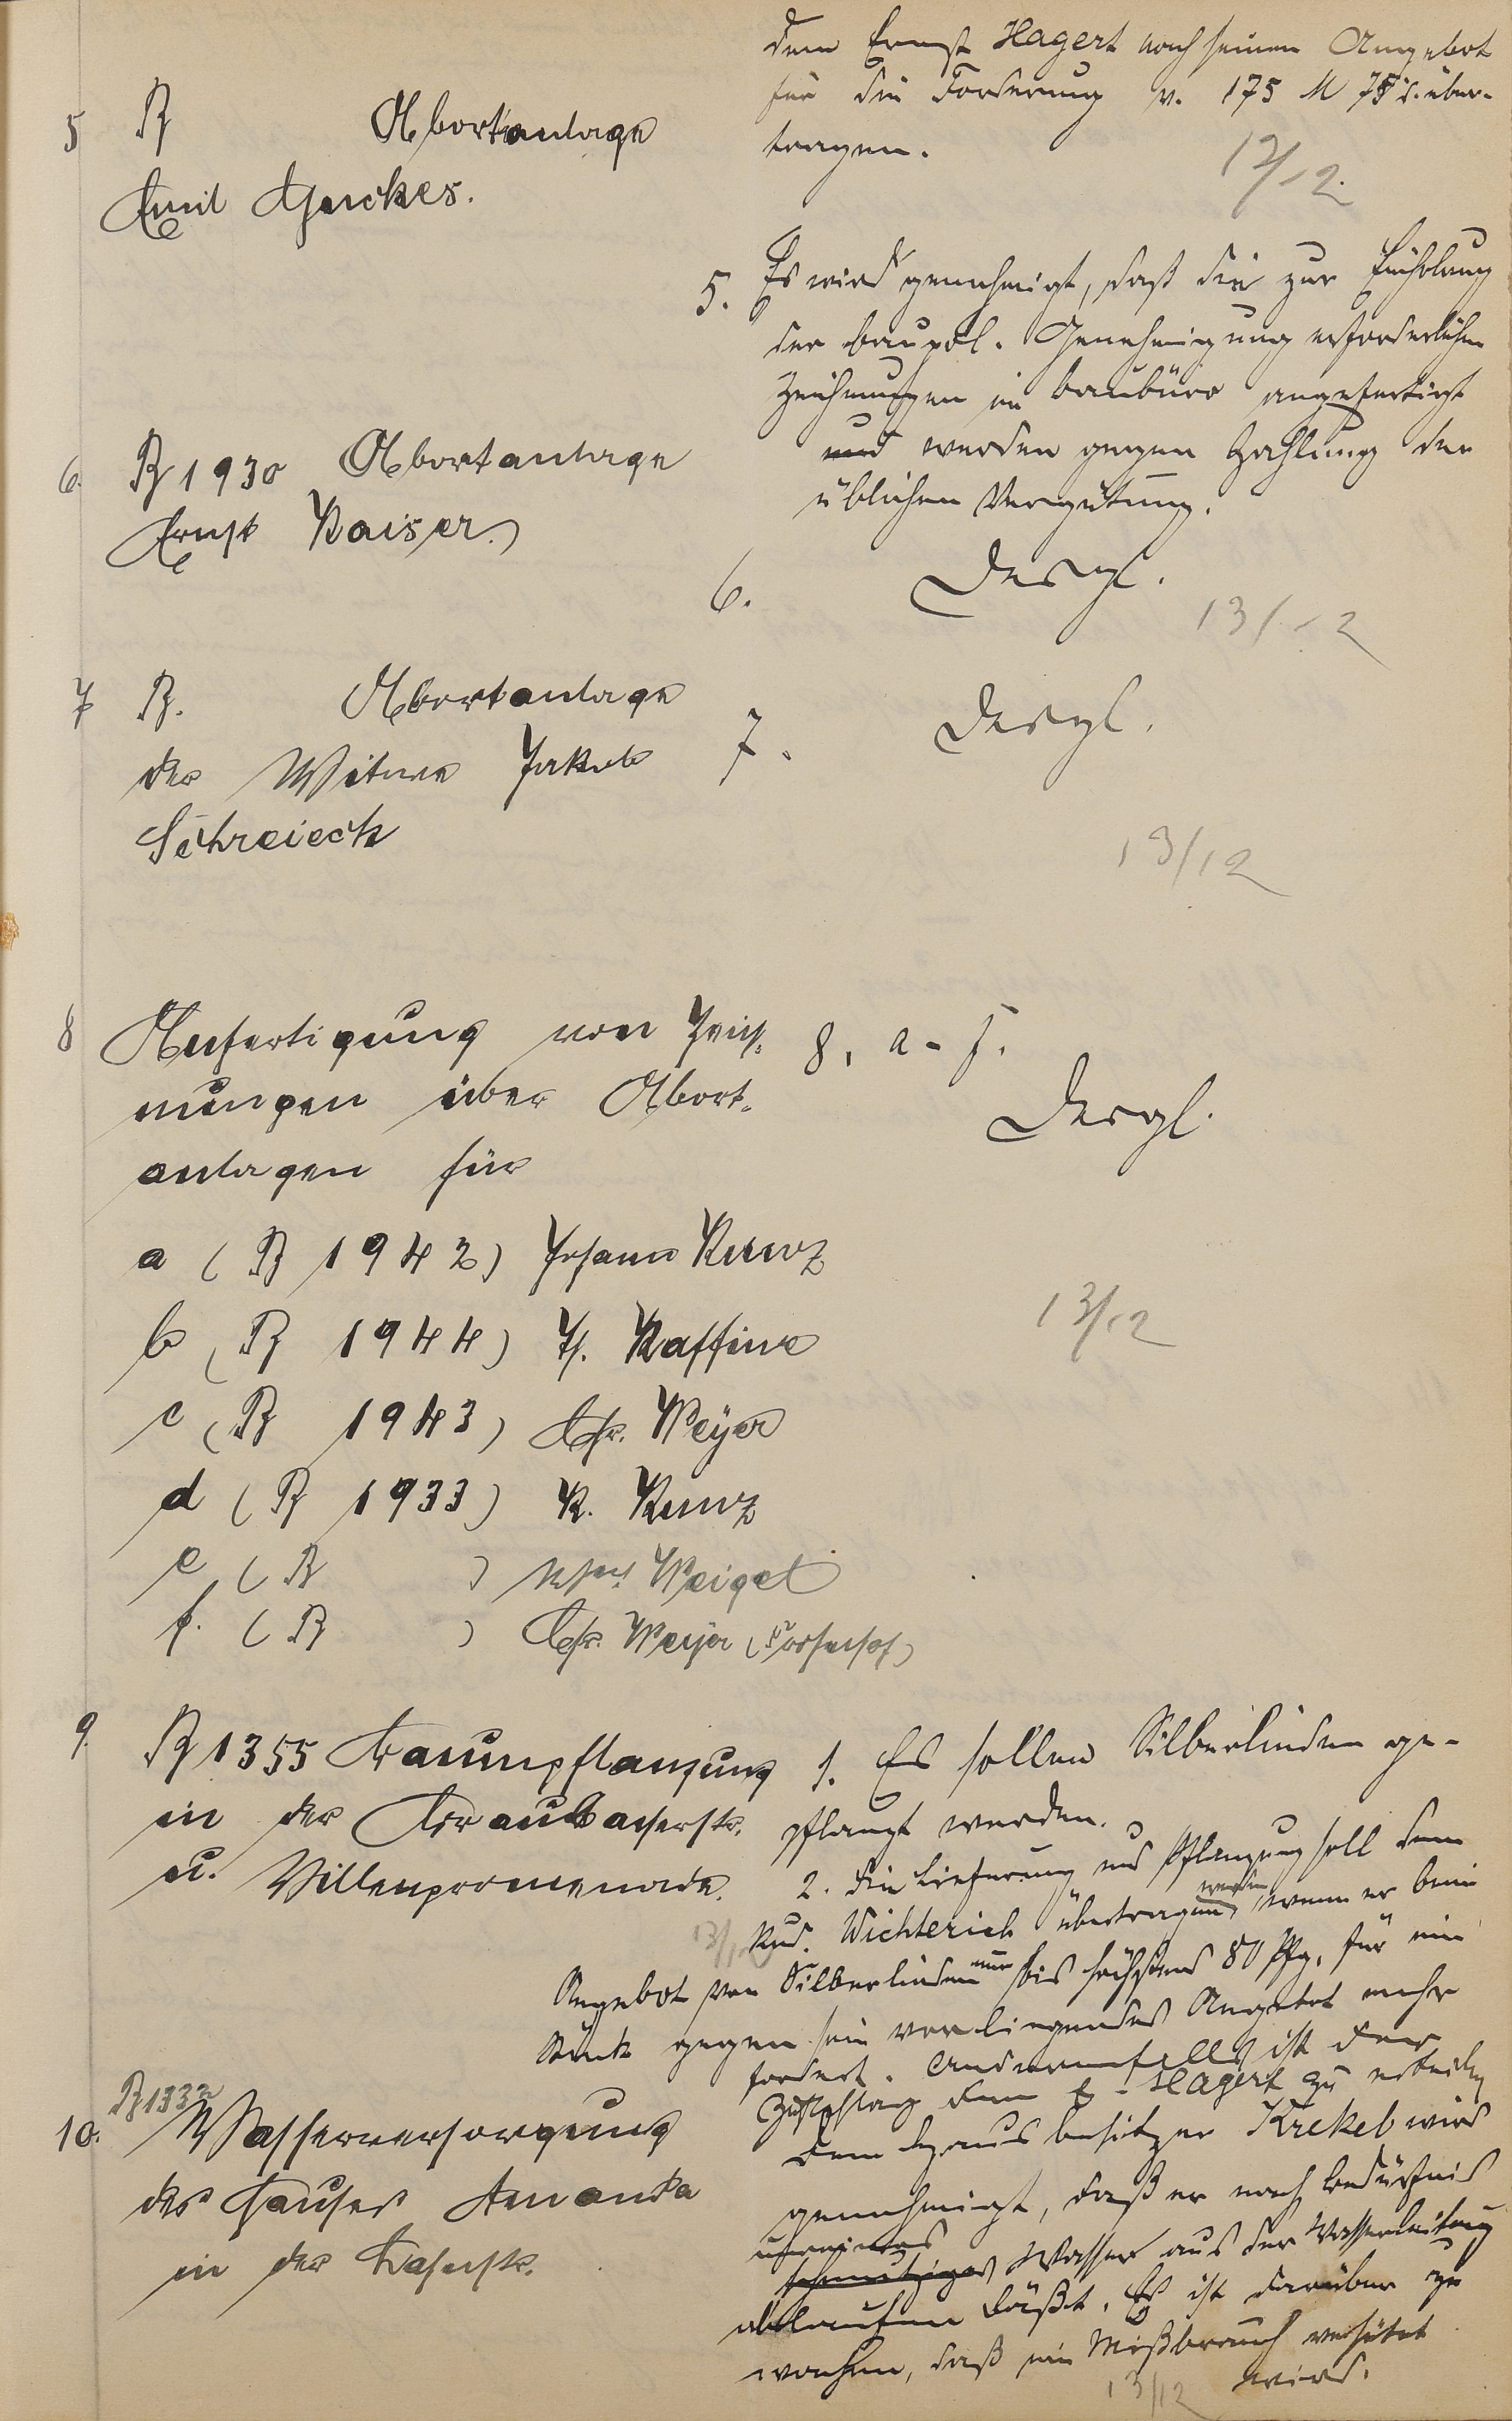 dem Ernst Hagert nach seinem Angebot
für die Forderung v. 175 M 75 d. über-
tragen.
12/12.
5 B Abortanlage
Emil Gerckes.
5. Es wird genehmigt, daß die zur Einholung
der baupol. Genehmigung erforderlichen
Zeichnungen im Baubüro angefertigt
und werden gegen Zahlung der
üblichen Vergütung.
6. B 1930 Abortanlage
Ernst Kaiser.
6. Desgl.
13/12
7 B. Abortanlage
der Witwe Jakob
Schreieck
7. Desgl.
13/12
8 Anfertigung von Zeich-
nungen über Abort-
anlagen für
8, a - f.
Desgl.
a (B 1942) Johann Kunz
b (B 1944) H. Kaffine
c (B 1943) Chr. Weyer
d (B 1933) K. Kunz
13/12
e (B ) Weigel
f. (B ) Chr. Weyer
9. B 1355 Baumpflanzung
in der Braubacherstr.
u. Villenpromenade.
1. Es sollen Silberlinden ge-
pflanzt werden.
2. Die Lieferung und Pflanzung soll dem
Rud. Wichterich übertragen werden, wenn er beim
13/12
Angebot von Silberlinden nur bis höchstens 80 Pfg. für ein
Stück gegen sein vorliegendes Angebot mehr
fordert. Andernfalls ist der
Zuschlag dem E. Hagert zu erteilen
B 1332
10. Wasserversorgung
des Hauses Amanda
in der Bahnstr.
Dem Hausbesitzer Krekel wird
genehmigt, daß er nach Bedürfnis
unreines
schmutziges Wasser aus der Wasserleitung
ablaufen läßt. Es ist darüber zu
wachen, daß ein Mißbrauch verhütet
wird.
13/12